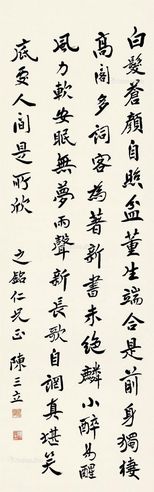 白髮蒼顏自照盆董生端合是前身獨棲
高閣多詞客為著新書未絕麟小醉易醒
風力軟安眠無夢雨聲新長歌自調真堪笑
底處人間是所欣
之銘仁兄正 陳三立